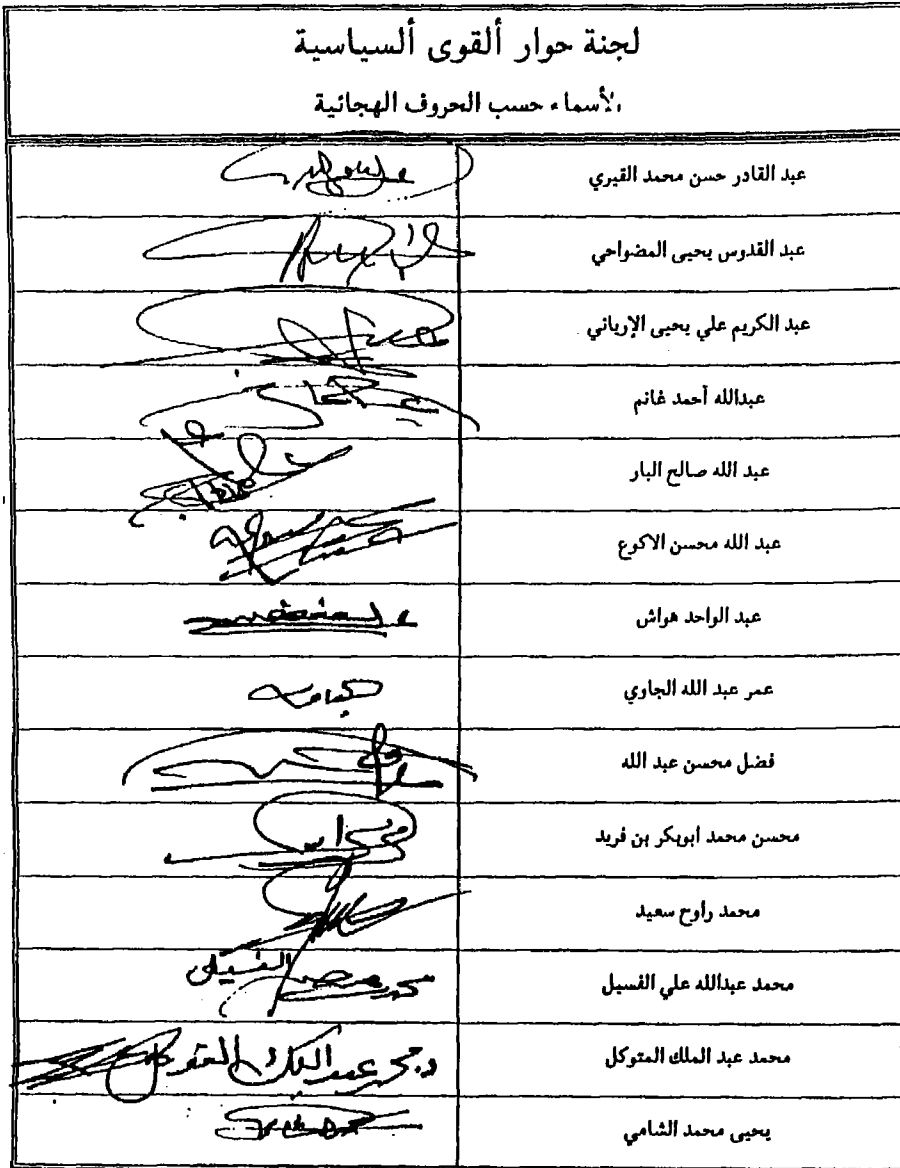 لجنة حوار ألقوى ألسياسية
الأسماء حسب الحروف الهجائية
عبد القادر حسن محمد القيري
عبد القدوس يحيى المضواحي
عبد الكريم علي يحيى الإرياني
عبدالله أحمد غانم
عبد الله صالح البار
عبد الله محسن الاكوع
عبد الواحد هواش
عمر عبد الله الجاوي
فضل محسن عبد الله
محسن محمد ابوبكر بن فريد
محمد راوح سعيد
محمد عبدالله علي الفسيل
الفسيل
محمد عبد الملك المتوكل
د. محمد عبد الملك المتوكل
يحيى محمد الشامي